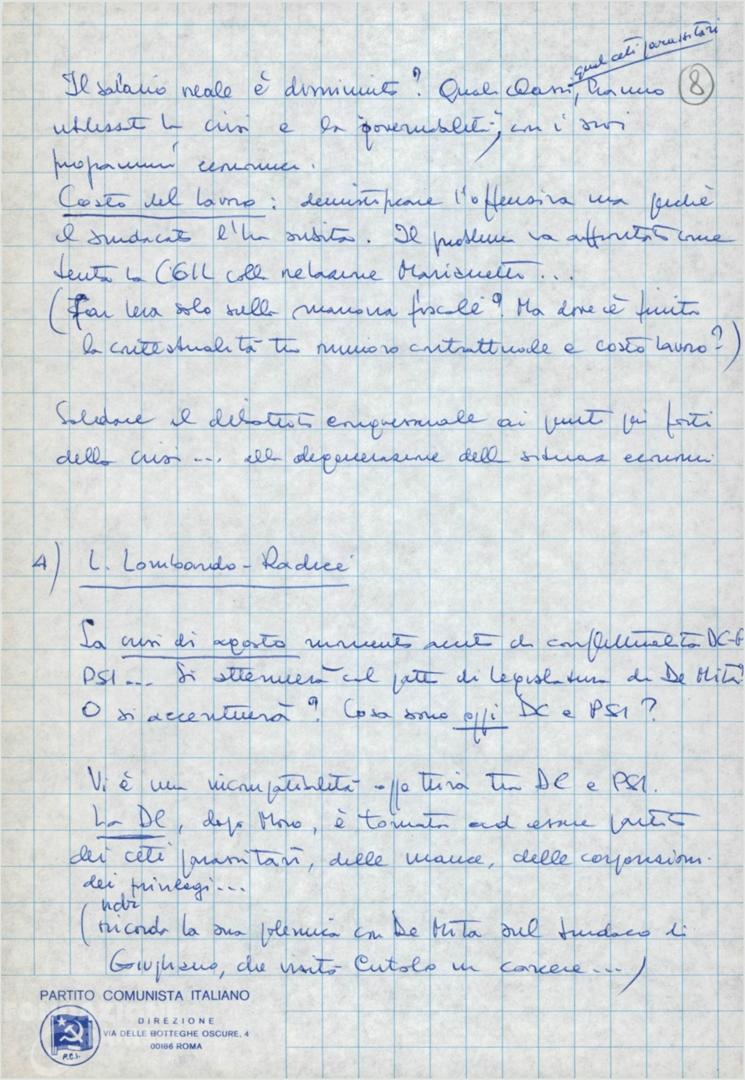 quali ceti parassitari
Il salario reale è diminuito? Quali classi, hanno 8
utilizzato la crisi e la "governabilità", con i suoi
programmi economici.
Costo del lavoro: demistificare l'offensiva ma perché
il sindacato l'ha subita. Il problema va affrontato come
tenta la CGIL colla relazione Marianetti...
(Far leva solo sulla manovra fiscale? Ma dove è finita
la contestualità tra rinnovo contrattuale e costo lavoro?)
Saldare il dibattito congressuale ai punti più forti
della crisi... alla degenerazione della situaz economi
4) L. Lombardo-Radice
La crisi di agosto momento acuto di conflittualità DC-
PSI... Si attenuerà col patto di legislatura di De Mita?
O si accentuerà? Cosa sono oggi DC e PSI?
Vi è una incompatibilità oggettiva tra DC e PSI.
La DC, dopo Moro, è tornata ad essere partito
dei ceti parassitari, delle mance, delle corporazioni.
dei privilegi...
ndr
(ricorda la sua polemica con De Mita sul sindaco di
Giugliano, che visitò Cutolo in carcere...)
PARTITO COMUNISTA ITALIANO
DIREZIONE
VIA DELLE BOTTEGHE OSCURE, 4
00186 ROMA
P.C.I.